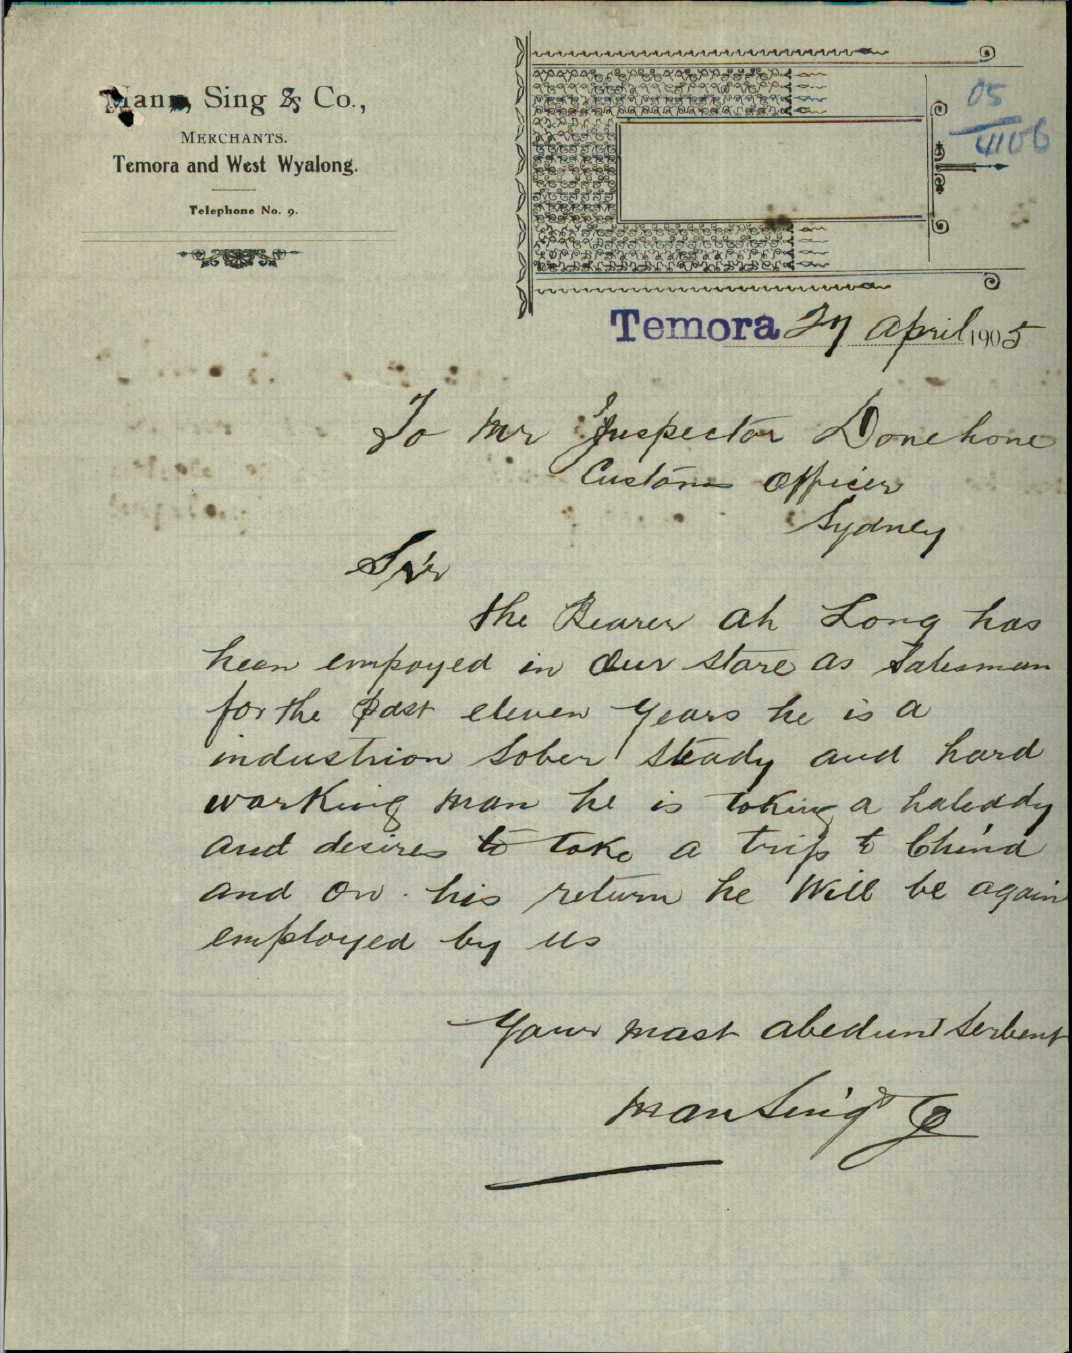 Mann, Sing & Co.,
MERCHANTS.
Temora and West Wyalong.
Telephone No. 9.
05
4106
Temora 27 April 1905
To Mr Inspector Donehone
Customs Officer
Sydney
Sir
the Bearer Ah Long has
been empoyed in Our store as Salesman
for the past eleven years he is a
industrion Sober Steady and hard
working man he is toking a haleddy
and desires to take a trip to China
and on his return he Will be again
employed by us
Your mast abedunt Serbent
Man Sing & Co